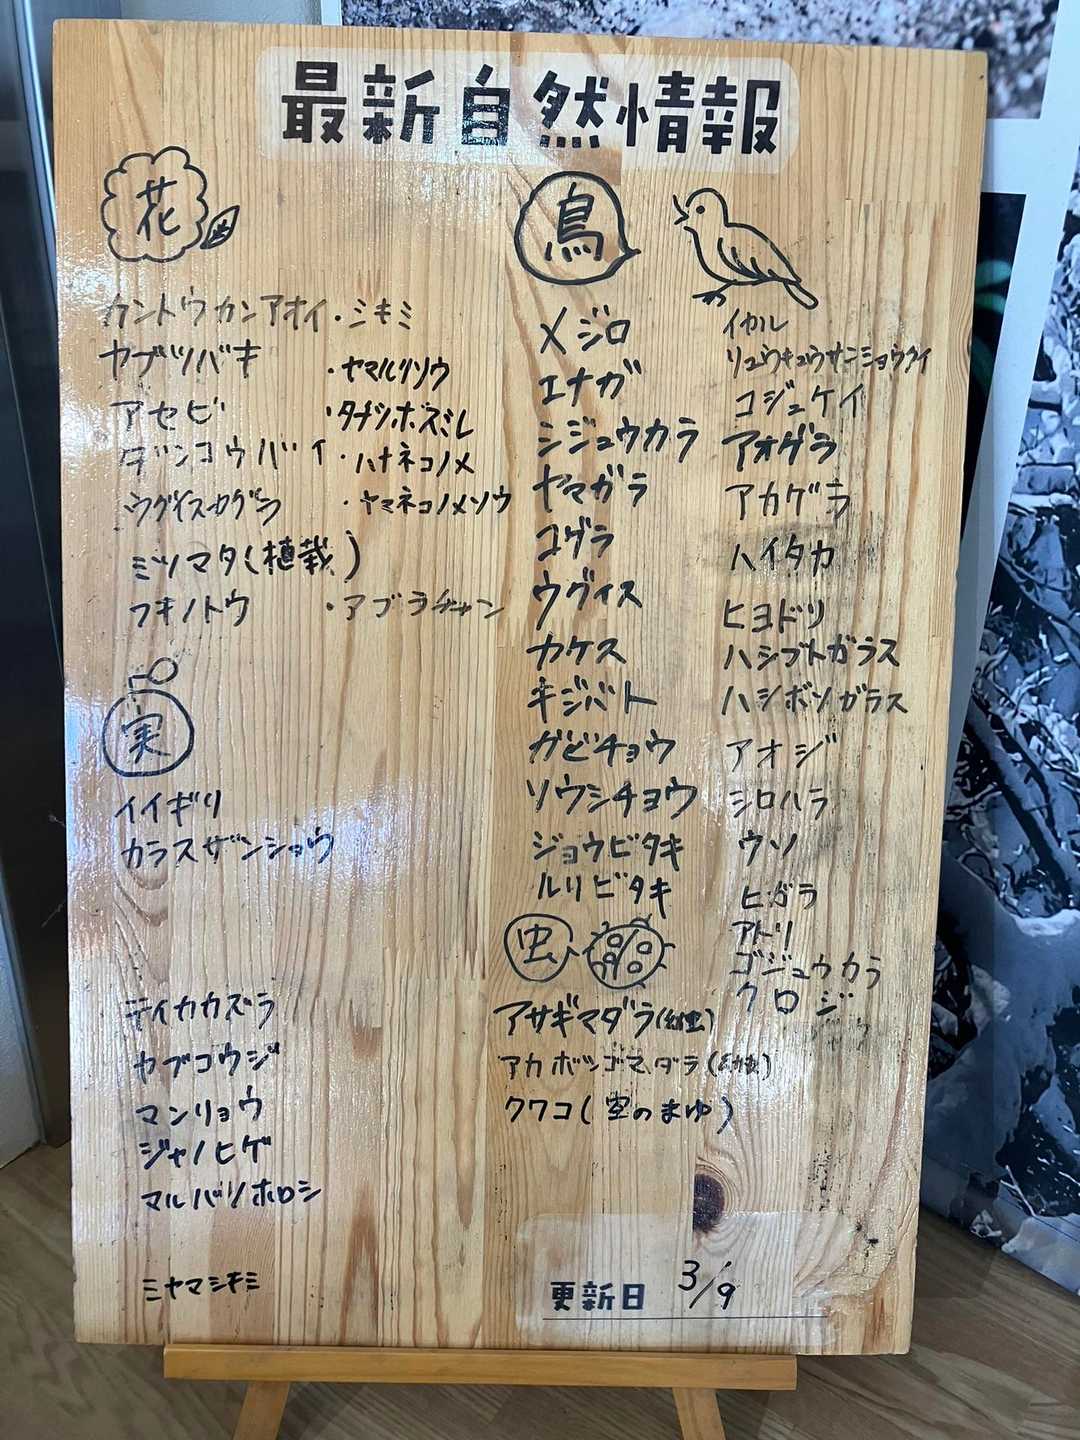 最新自然情報
花
カントウカンアオイ・シキミ
ヤブツバキ
・ヤマルリソウ
アセビ
・タチツボスミレ
ダンコウバイ
・ハナネコノメ
ウグイスカグラ
・ヤマネコノメソウ
ミツマタ(植栽)
フキノトウ
・アブラチャン
実
イイギリ
カラスザンショウ
テイカカズラ
ヤブコウジ
マンリョウ
ジャノヒゲ
マルバノホロシ
ミヤマシキミ
鳥
メジロ
エナガ
シジュウカラ
ヤマガラ
コゲラ
ウグイス
カケス
キジバト
ガビチョウ
ソウシチョウ
ジョウビタキ
ルリビタキ
イカル
リュウキュウサンショウクイ
コジュケイ
アオゲラ
アカゲラ
ハイタカ
ヒヨドリ
ハシブトガラス
ハシボソガラス
アオジ
シロハラ
ウソ
ヒガラ
アトリ
ゴジュウカラ
クロジ
虫
アサギマダラ(幼虫)
アカボシゴマダラ(幼虫)
クワコ(空のまゆ)
更新日 3/9